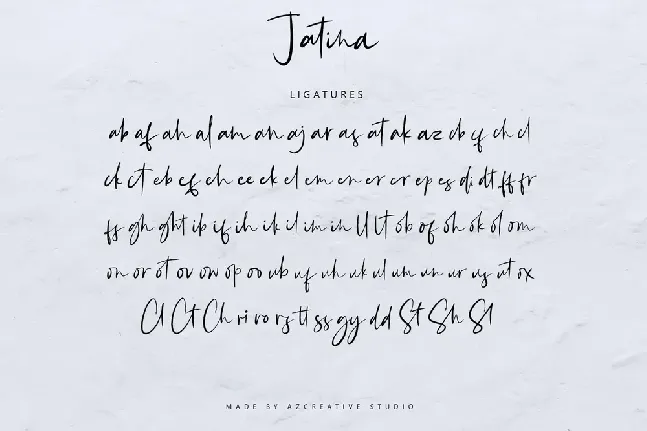 Jatina
LIGATURES
ab af ah al am an aj ar as at ak az cb cf ch cl
ck ct eb ef eh ee ek el em en er er ep es di dt ff fr
fs gh ght ib if ih ik il im in ll lt ob of oh ok ol om
on or ot ov ow op oo ub uf uh uk ul um un ur us ut ox
Cl Ct Ch ri ro rs tt ss gy dd St Sh Sl
MADE BY AZCREATIVE STUDIO